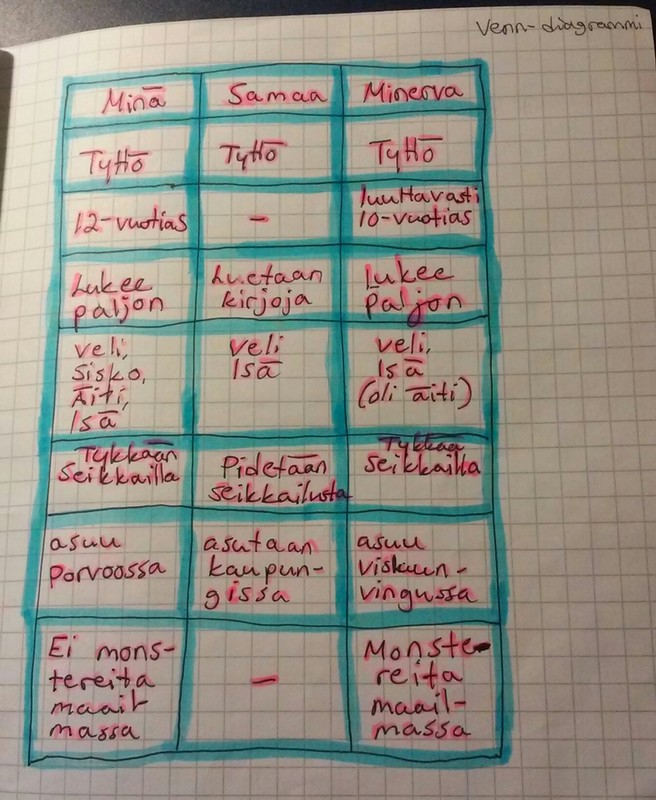 Venn-diagrammi
Minä Samaa Minerva
Tyttö Tyttö Tyttö
12-vuotias - luultavasti
10-vuotias
Lukee
paljon
Luetaan
kirjoja
Lukee
paljon
veli,
sisko,
Äiti,
Isä
veli
Isä
veli,
Isä
(oli äiti)
Tykkään
seikkailla
Pidetään
seikkailusta
Tykkää
seikkailla
asuu
Porvoossa
asutaan
kaupun-
gissa
asuu
viskuun-
vingussa
Ei mons-
tereita
maail-
massa
-
Monste-
reita
maail-
massa